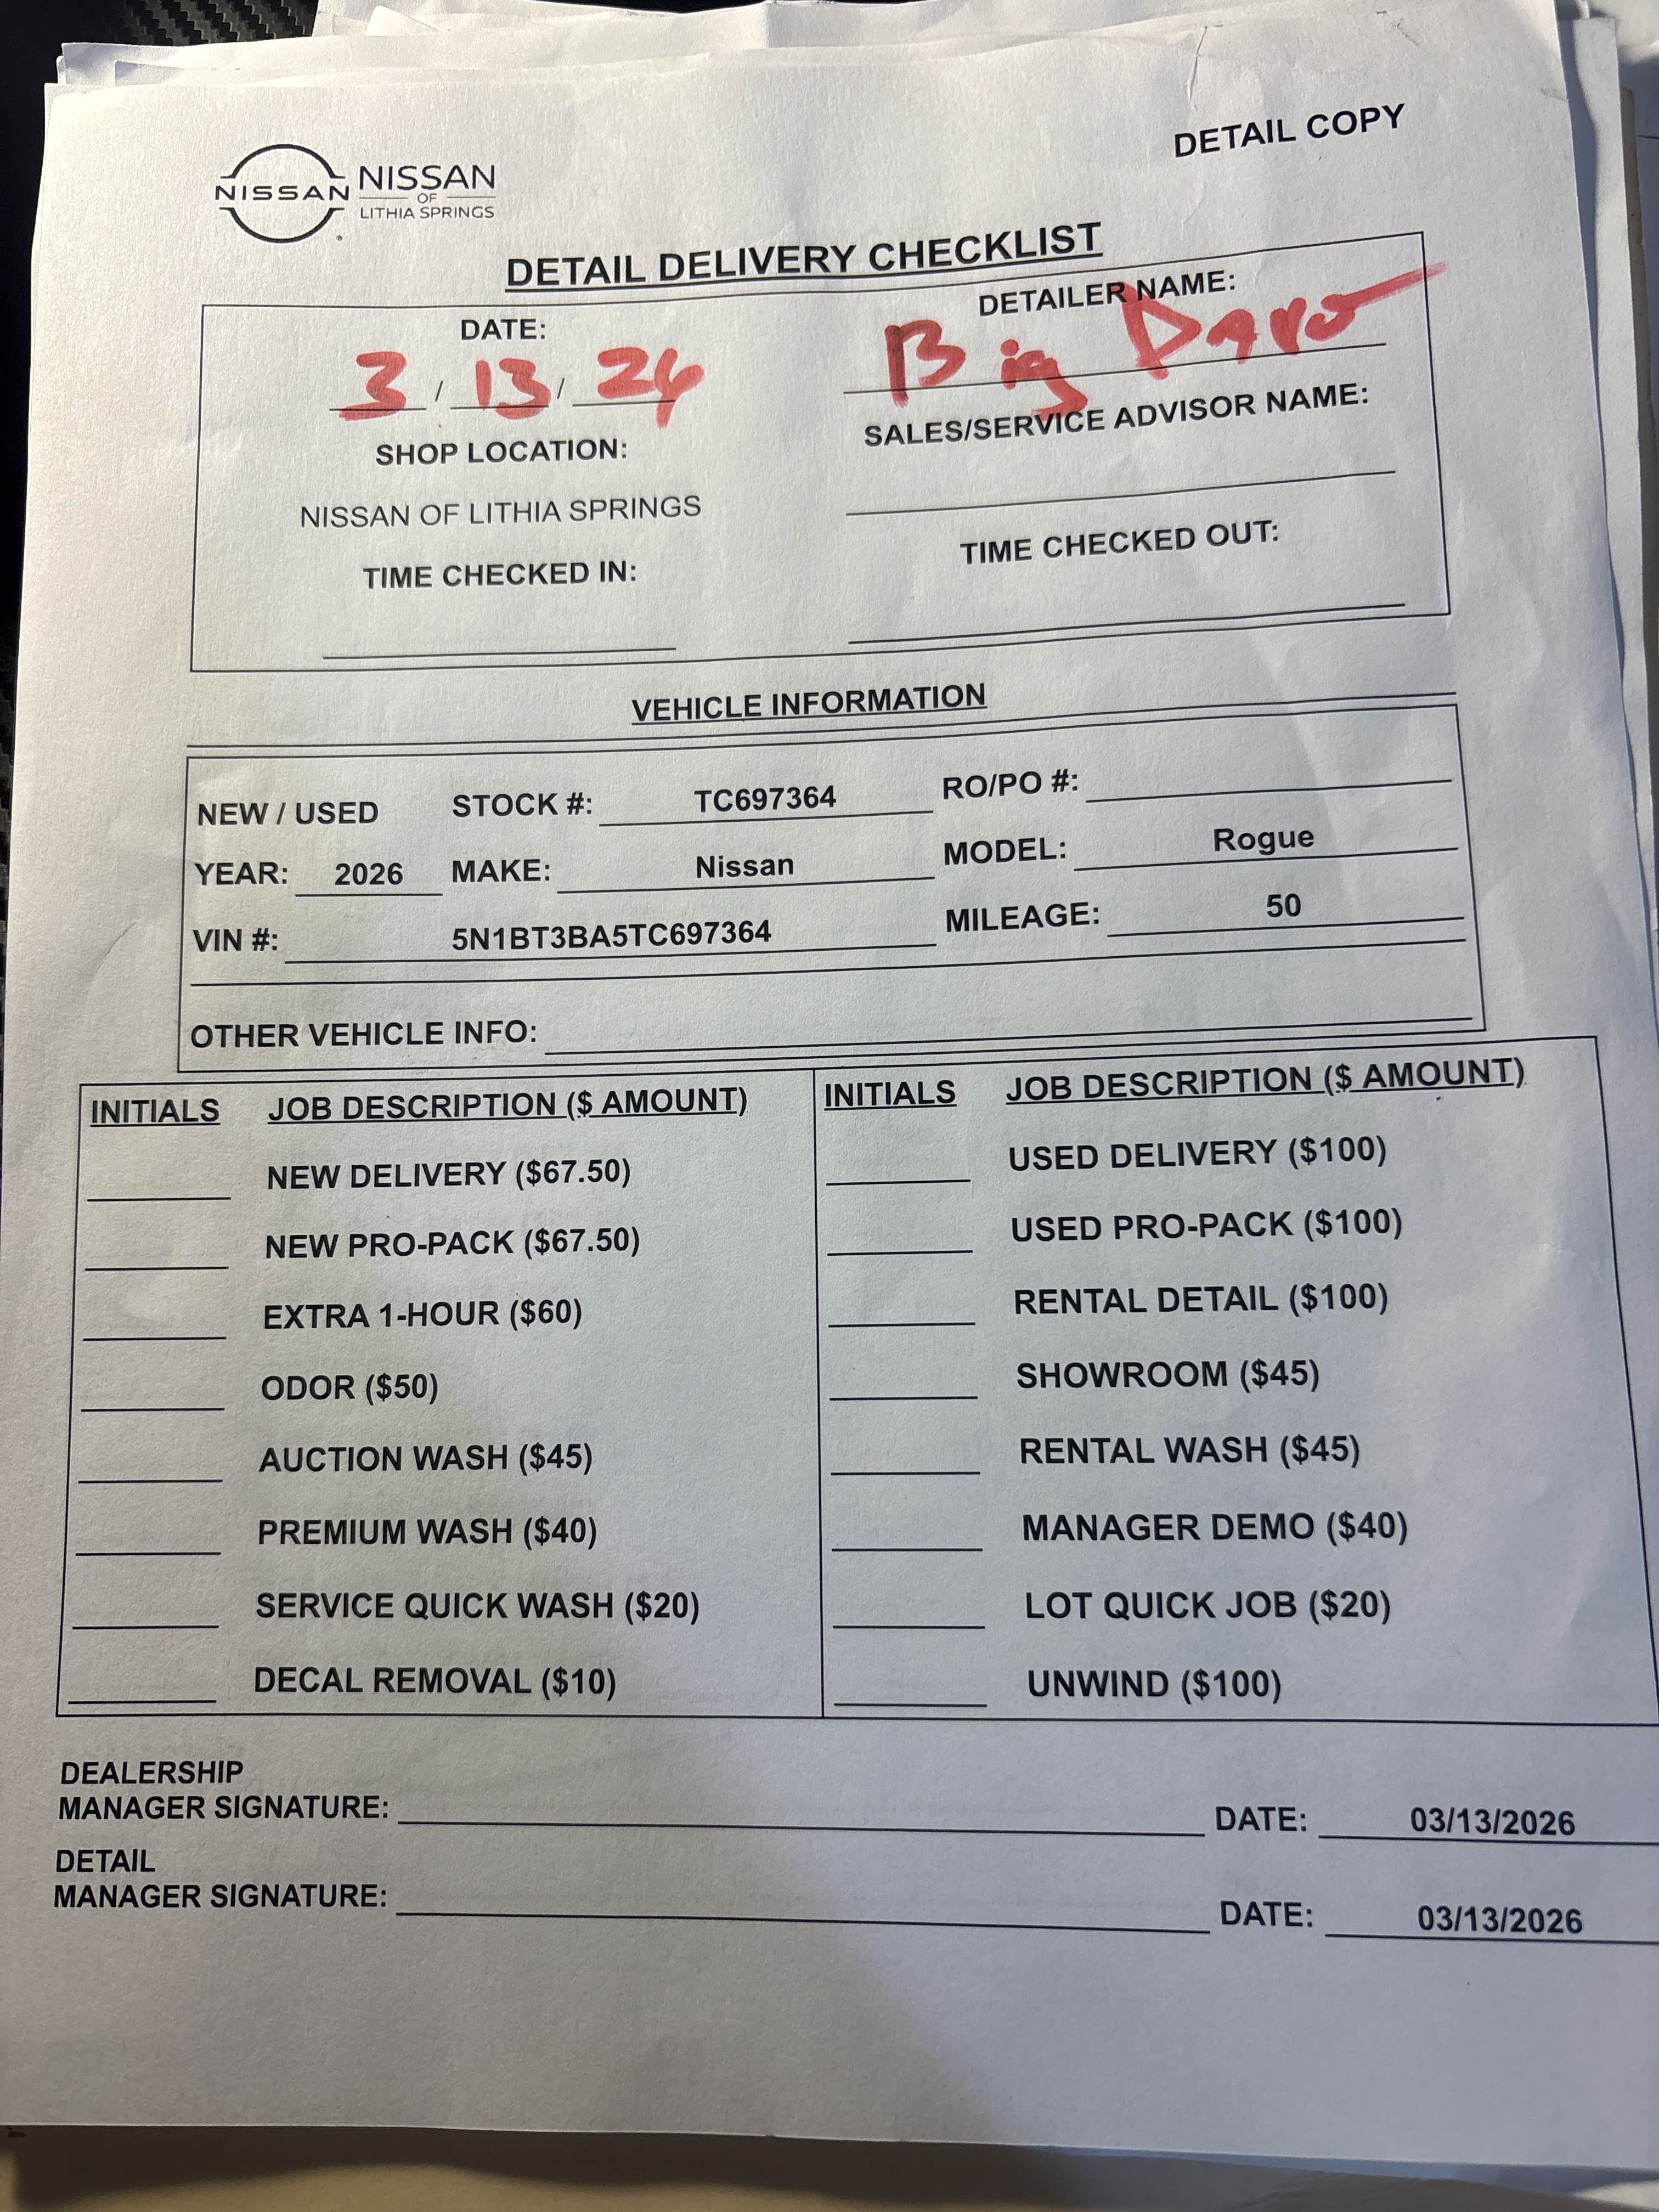 DETAIL COPY
NISSAN NISSAN
OF
LITHIA SPRINGS
DETAIL DELIVERY CHECKLIST
DATE:
3 / 13 / 26
DETAILER NAME:
Big
SHOP LOCATION:
NISSAN OF LITHIA SPRINGS
SALES/SERVICE ADVISOR NAME:
TIME CHECKED IN:
TIME CHECKED OUT:
VEHICLE INFORMATION
NEW / USED STOCK #: TC697364 RO/PO #:
YEAR: 2026 MAKE: Nissan MODEL: Rogue
VIN #: 5N1BT3BA5TC697364 MILEAGE: 50
OTHER VEHICLE INFO:
INITIALS JOB DESCRIPTION ($ AMOUNT) INITIALS JOB DESCRIPTION ($ AMOUNT)
NEW DELIVERY ($67.50) USED DELIVERY ($100)
NEW PRO-PACK ($67.50) USED PRO-PACK ($100)
EXTRA 1-HOUR ($60) RENTAL DETAIL ($100)
ODOR ($50) SHOWROOM ($45)
AUCTION WASH ($45) RENTAL WASH ($45)
PREMIUM WASH ($40) MANAGER DEMO ($40)
SERVICE QUICK WASH ($20) LOT QUICK JOB ($20)
DECAL REMOVAL ($10) UNWIND ($100)
DEALERSHIP
MANAGER SIGNATURE: DATE: 03/13/2026
DETAIL
MANAGER SIGNATURE: DATE: 03/13/2026